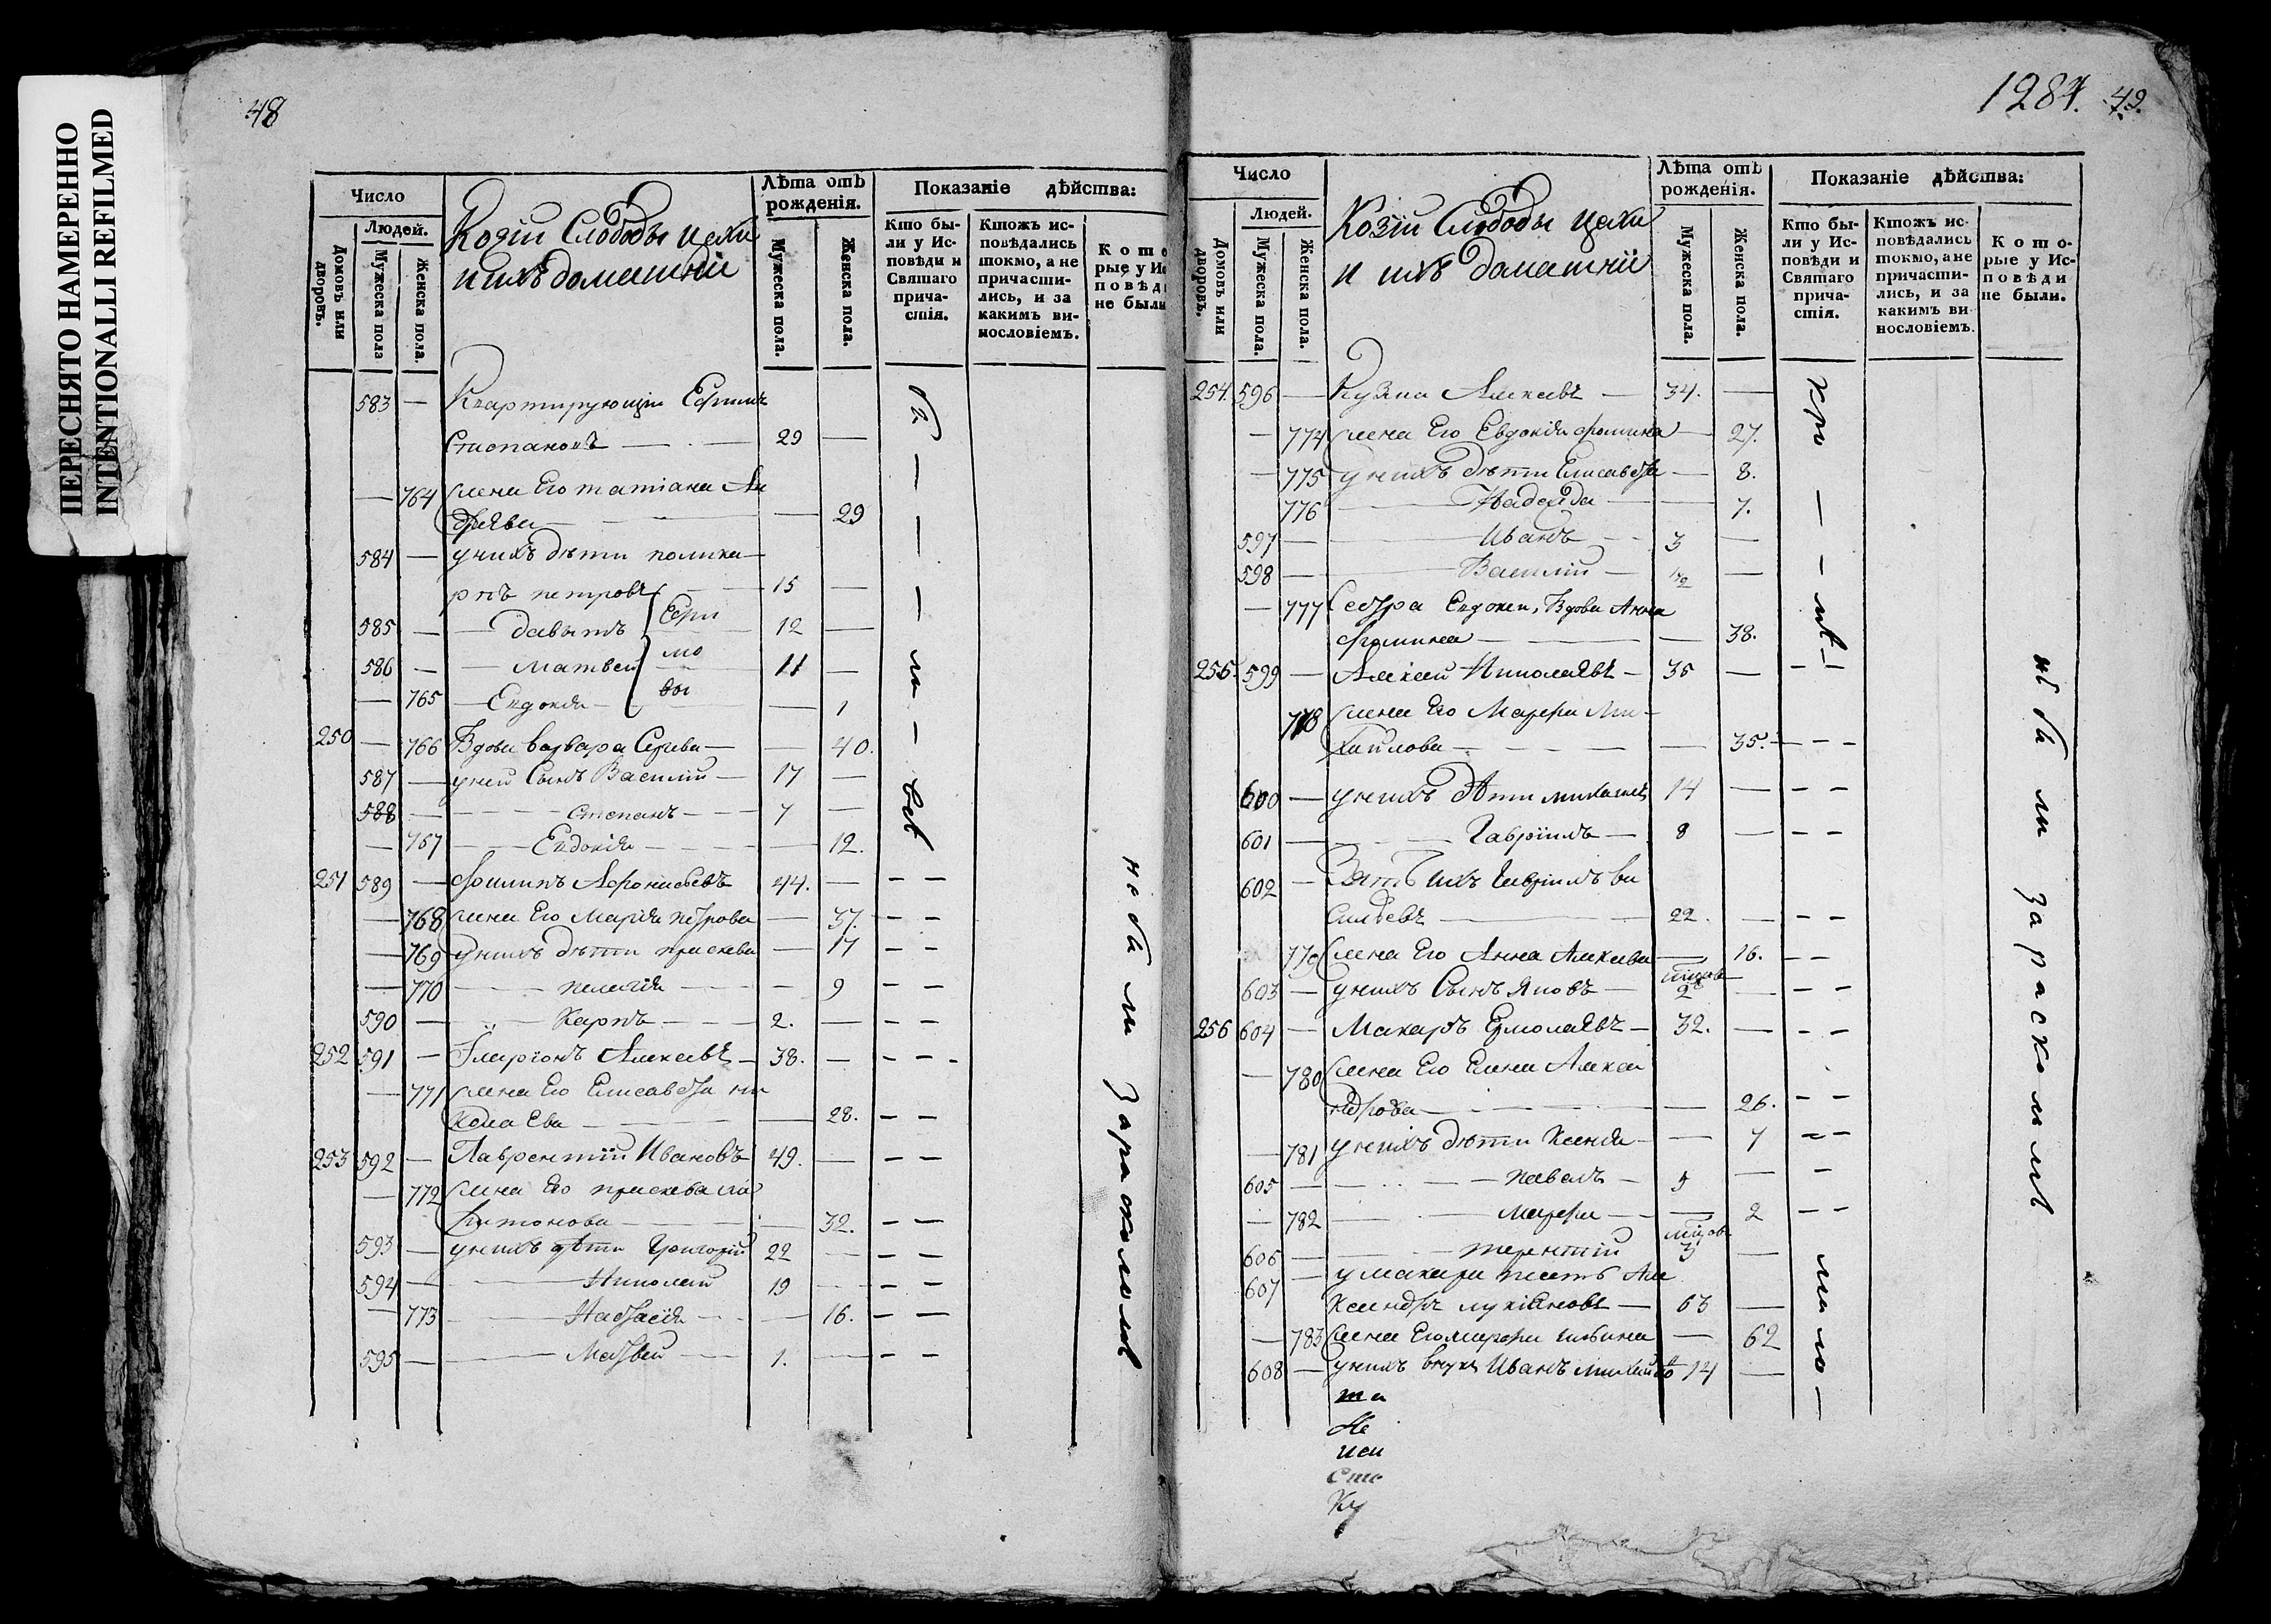 ПЕРЕСНЯТО НАМЕРЕННО
INTENTIONALLI REFILMED
48
Число
Людей.
Домовъ или дворовъ.
Мужеска пола
Женска пола.
Козiй Слободы цехи
и ихъ домашнiи
Лѣта отъ рожденiя.
Мужеска пола.
Женска пола.
Показанiе дѣйства:
Кто были у Исповѣди и Святаго причастiя.
Ктожъ исповѣдались токмо, а не причастились, и за какимъ винословiемъ.
Кото
рые у Ис
повѣд
не были
583 — Квартирующiи Ефимъ
Степановъ — 29 —
— 764 жена Его татiана Ан
дрѣева — — 29
584 — у нихъ дѣти полика
рпъ петровъ — 15 —
585 — — давыдъ 12 —
586 — — матвей 11 —
— 765 — Евдокiя — — 1
250 — 766 Вдова варвара Сергѣева — — 40.
587 — у ней Сынъ Василiй — 17 —
588 — степанъ — 7 —
— 767 — Евдокiя — — 12.
251 589 — Филипъ Афонасьевъ 44. — — —
— 768 жена Его Марiя петрова — 37. — —
— 769 у нихъ дѣти прасковья — 17 — —
— 770 — пелагiя — — 9 — —
590 — — Карпъ — 2. — — —
252 591 — Иларiонъ Алексѣевъ — 38. — — —
— 771 жена Его Елисавета ни
колаева — — 28. — —
253 592 — Лаврентiй Ивановъ 49. — — —
— 772 жена Его прасковья
— 32. — —
593 — у нихъ дѣти Григорiй 22 — — —
594 — — Николай 19 — — —
— 773 — Настасiя — — 16. — —
595 — — Матвей — 1. — — —
не были за расколомъ
1287. 49.
Число
Людей.
Домовъ или дворовъ.
Мужеска пола.
Женска пола.
Козiй Слободы цехи
и ихъ домашнiи
Лѣта отъ рожденiя.
Мужеска пола.
Женска пола.
Показанiе дѣйства:
Кто были у Исповѣди и Святаго причастiя.
Ктожъ исповѣдались токмо, а не причастились, и за какимъ винословiемъ.
Которые у Исповѣди не были.
254. 596 — Кузма Алексѣевъ — 34. —
— 774 жена Его Евдокiя фомина — 27.
— 775 у нихъ дѣти Елисавета — 8.
776 — Надежда — — 7.
597 — — Иванъ — 3 —
598 — — Василiй — 1/2 —
— 777 Сестра Евдокеи, Вдова Анна
фомина — — 38.
255. 599 — Алексей Николаевъ — 35 — — —
778 жена Его Марфа Ми
хаилова — — 35. — — —
600 — у нихъ дѣти михаилъ 14 — — —
601 — — Гаврiилъ — 8 — — —
602 — Зять ихъ Гаврiилъ ва
сильевъ — 22. — — —
779 жена Его Анна Алексѣева — 16. — —
603 — у нихъ Сынъ Яковъ — 2 — — —
256 604 — Макаръ Ермолаевъ — 32. — — —
— 780 жена Его Елена Алекса
ндрова — — 26. — —
— 781 у нихъ дѣти Ксенiя — — 7 — —
605 — — павелъ — 5 — —
— 782 — марфа — — 2 — —
606 — — терентiй 3 —
607 — у макара тесть Але
ксандръ лукiановъ — 63 —
— 783 жена Его марфа — 62
608 — у нихъ внукъ Иванъ 14 —
не были за расколомъ